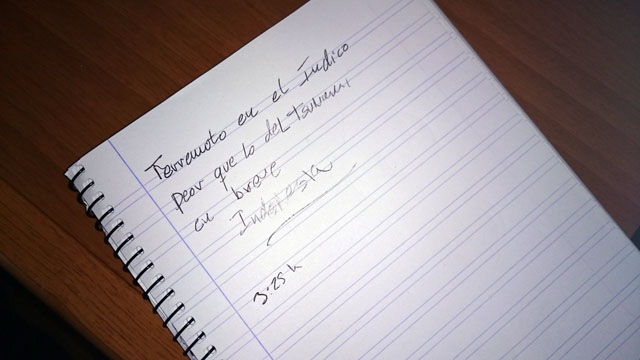 Terremoto en el Índico
Peor que lo del Tsunami,
en breve
Indonesia
3:25 h